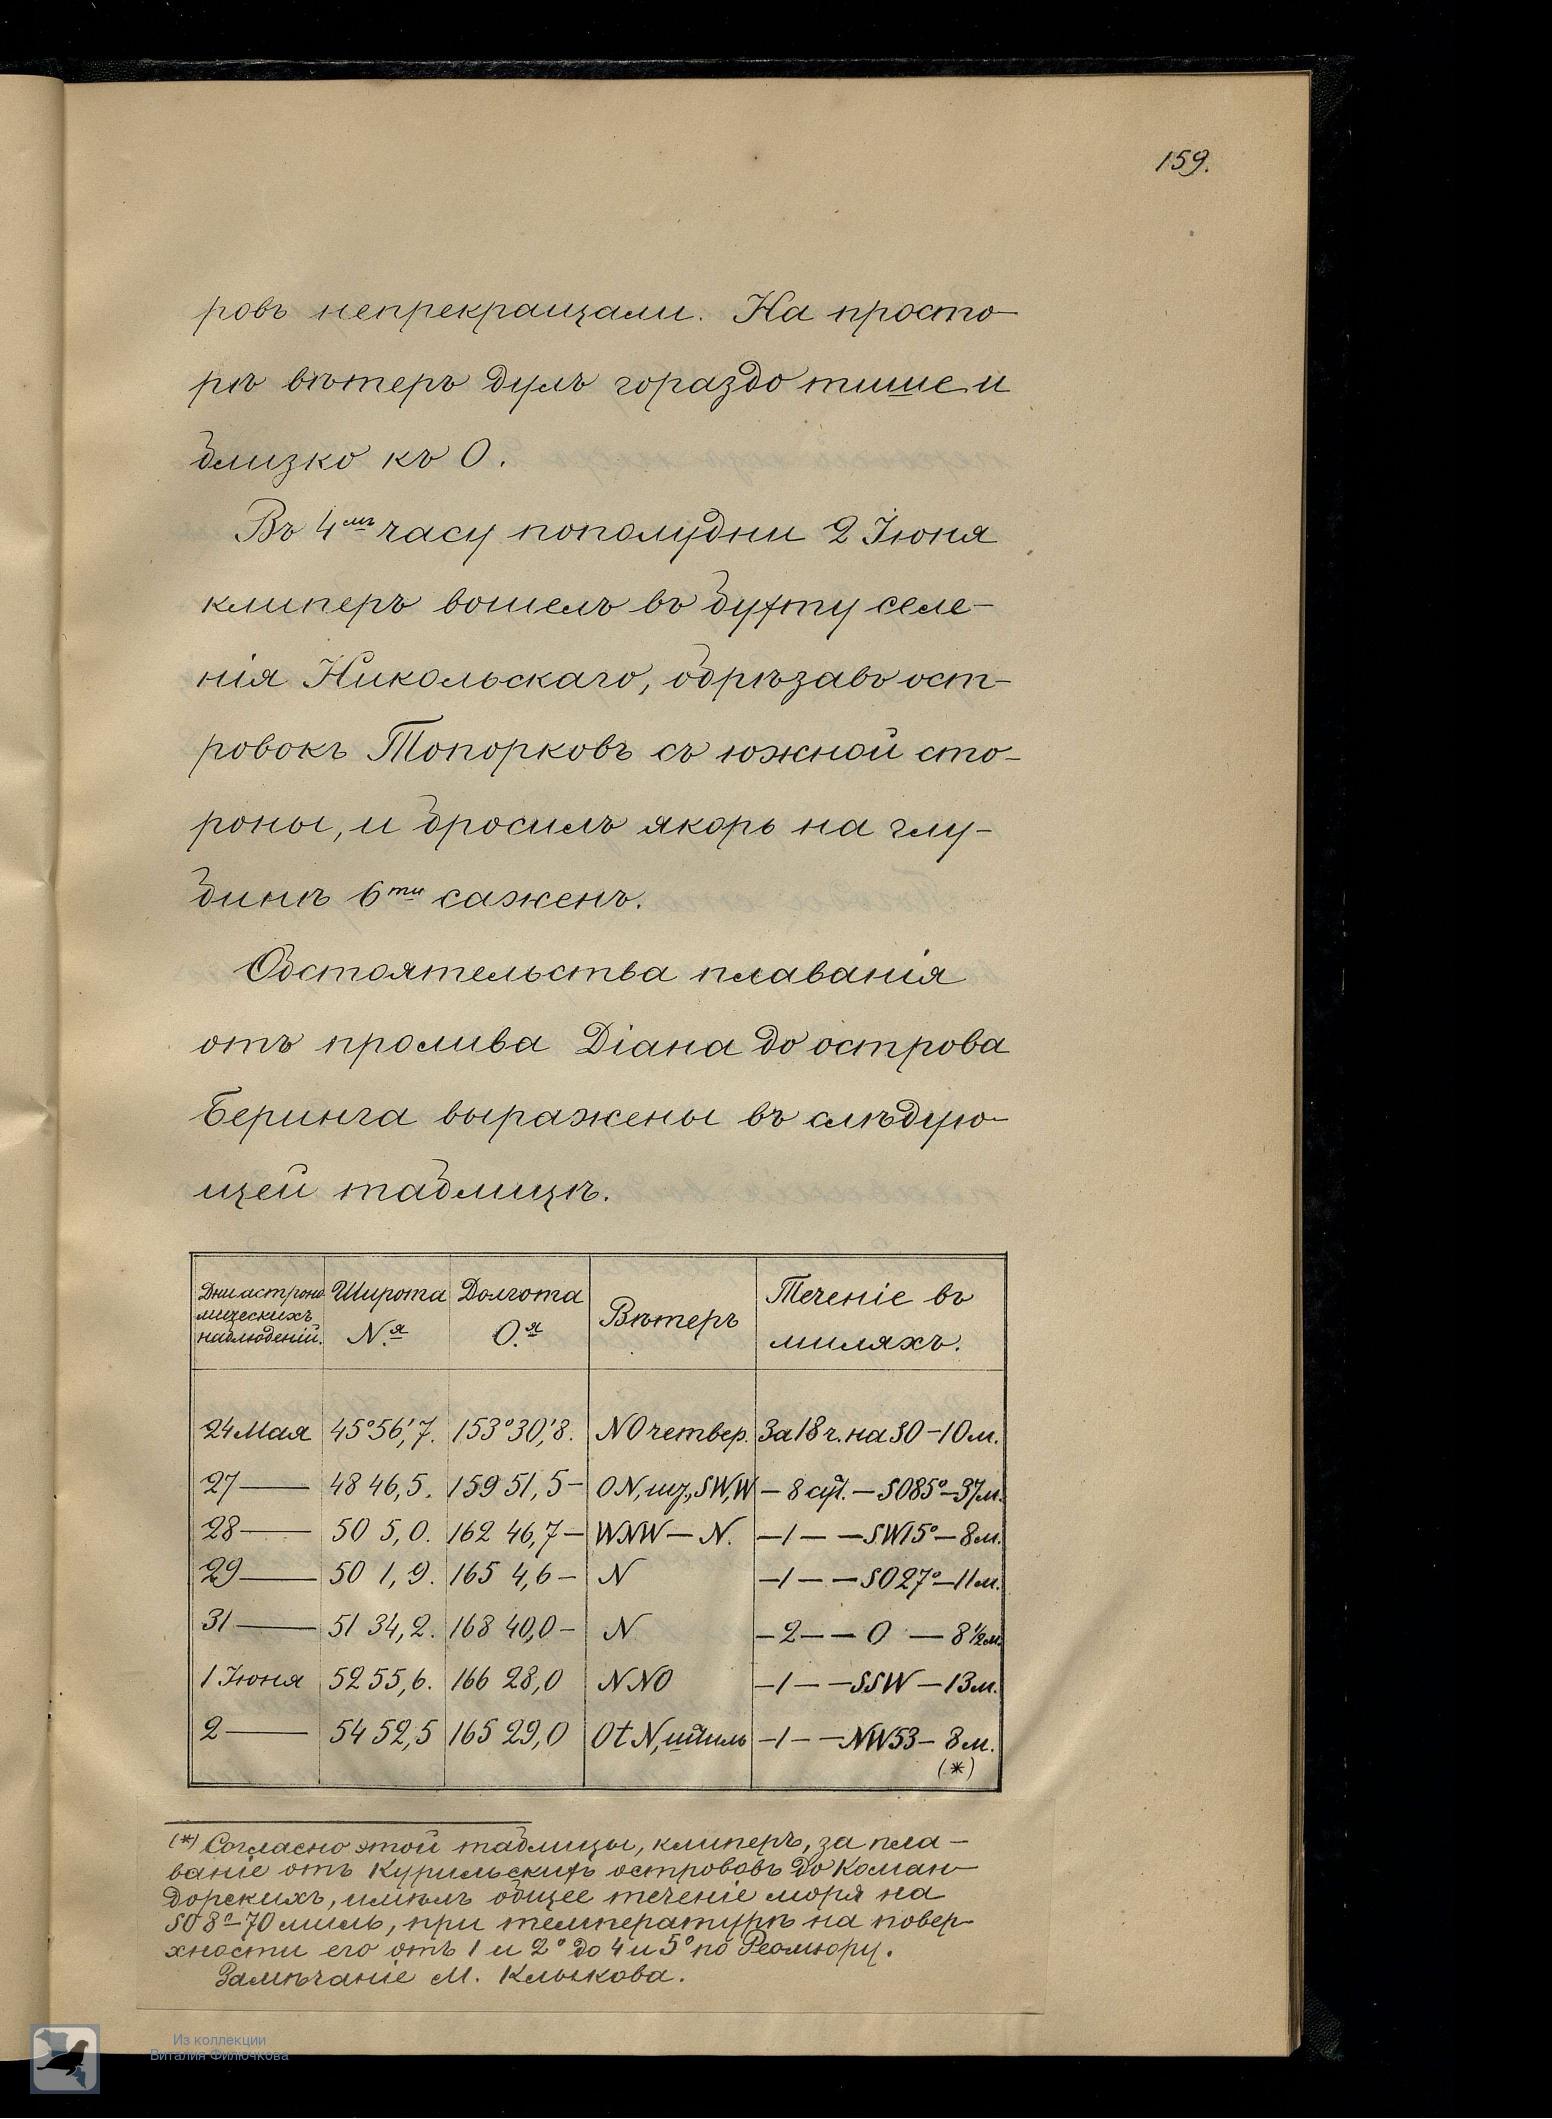 159.
ровъ непрекращали. На просто-
рѣ вѣтеръ дулъ гораздо тише и
близко къ O.
Въ 4мъ часу пополудни 2 Іюня
клиперъ вошелъ въ бухту селе-
нія Никольскаго, обрѣзавъ ост-
ровокъ Топорковъ съ южной сто-
роны, и бросилъ якорь на глу-
бинѣ 6ти саженъ.
Обстоятельства плаванія
отъ пролива Діана до острова
Беринга выражены въ слѣдую-
щей таблицѣ.
Дни астроно- Широта Долгота Вѣтеръ Теченіе въ
мическихъ миляхъ.
наблюденій. N.я O.я
24 Мая 45°56',7. 153°30',8. NO четвер. За 18 ч. на SO - 10 м.
27 — 48 46,5. 159 51,5 - ON, SW, W — 8 сут. — SO85° — 37 м.
28 — 50 5,0. 162 46,7 — WNW — N. — 1 — — SW15° — 8 м.
29 — 50 1,9. 165 4,6 — N — 1 — — SO27° — 11 м.
31 — 51 34,2. 168 40,0 — N — 2 — — O — 8½ м.
1 Іюня 52 55,6. 166 28,0 NNO — 1 — — SSW — 13 м.
2 — 54 52,5 165 29,0 OtN, штиль — 1 — — NW53 — 8 м.
(*)
(*) Согласно этой таблицы, клиперъ, за пла-
ваніе отъ Курильскихъ острововъ до Коман-
дорскихъ, имѣлъ общее теченіе моря на
SO 8° - 70 миль, при температурѣ на повер-
хности его отъ 1 и 2° до 4 и 5° по Реомюру.
Замѣчаніе М. Клыкова.
Из коллекции
Виталия Филючкова